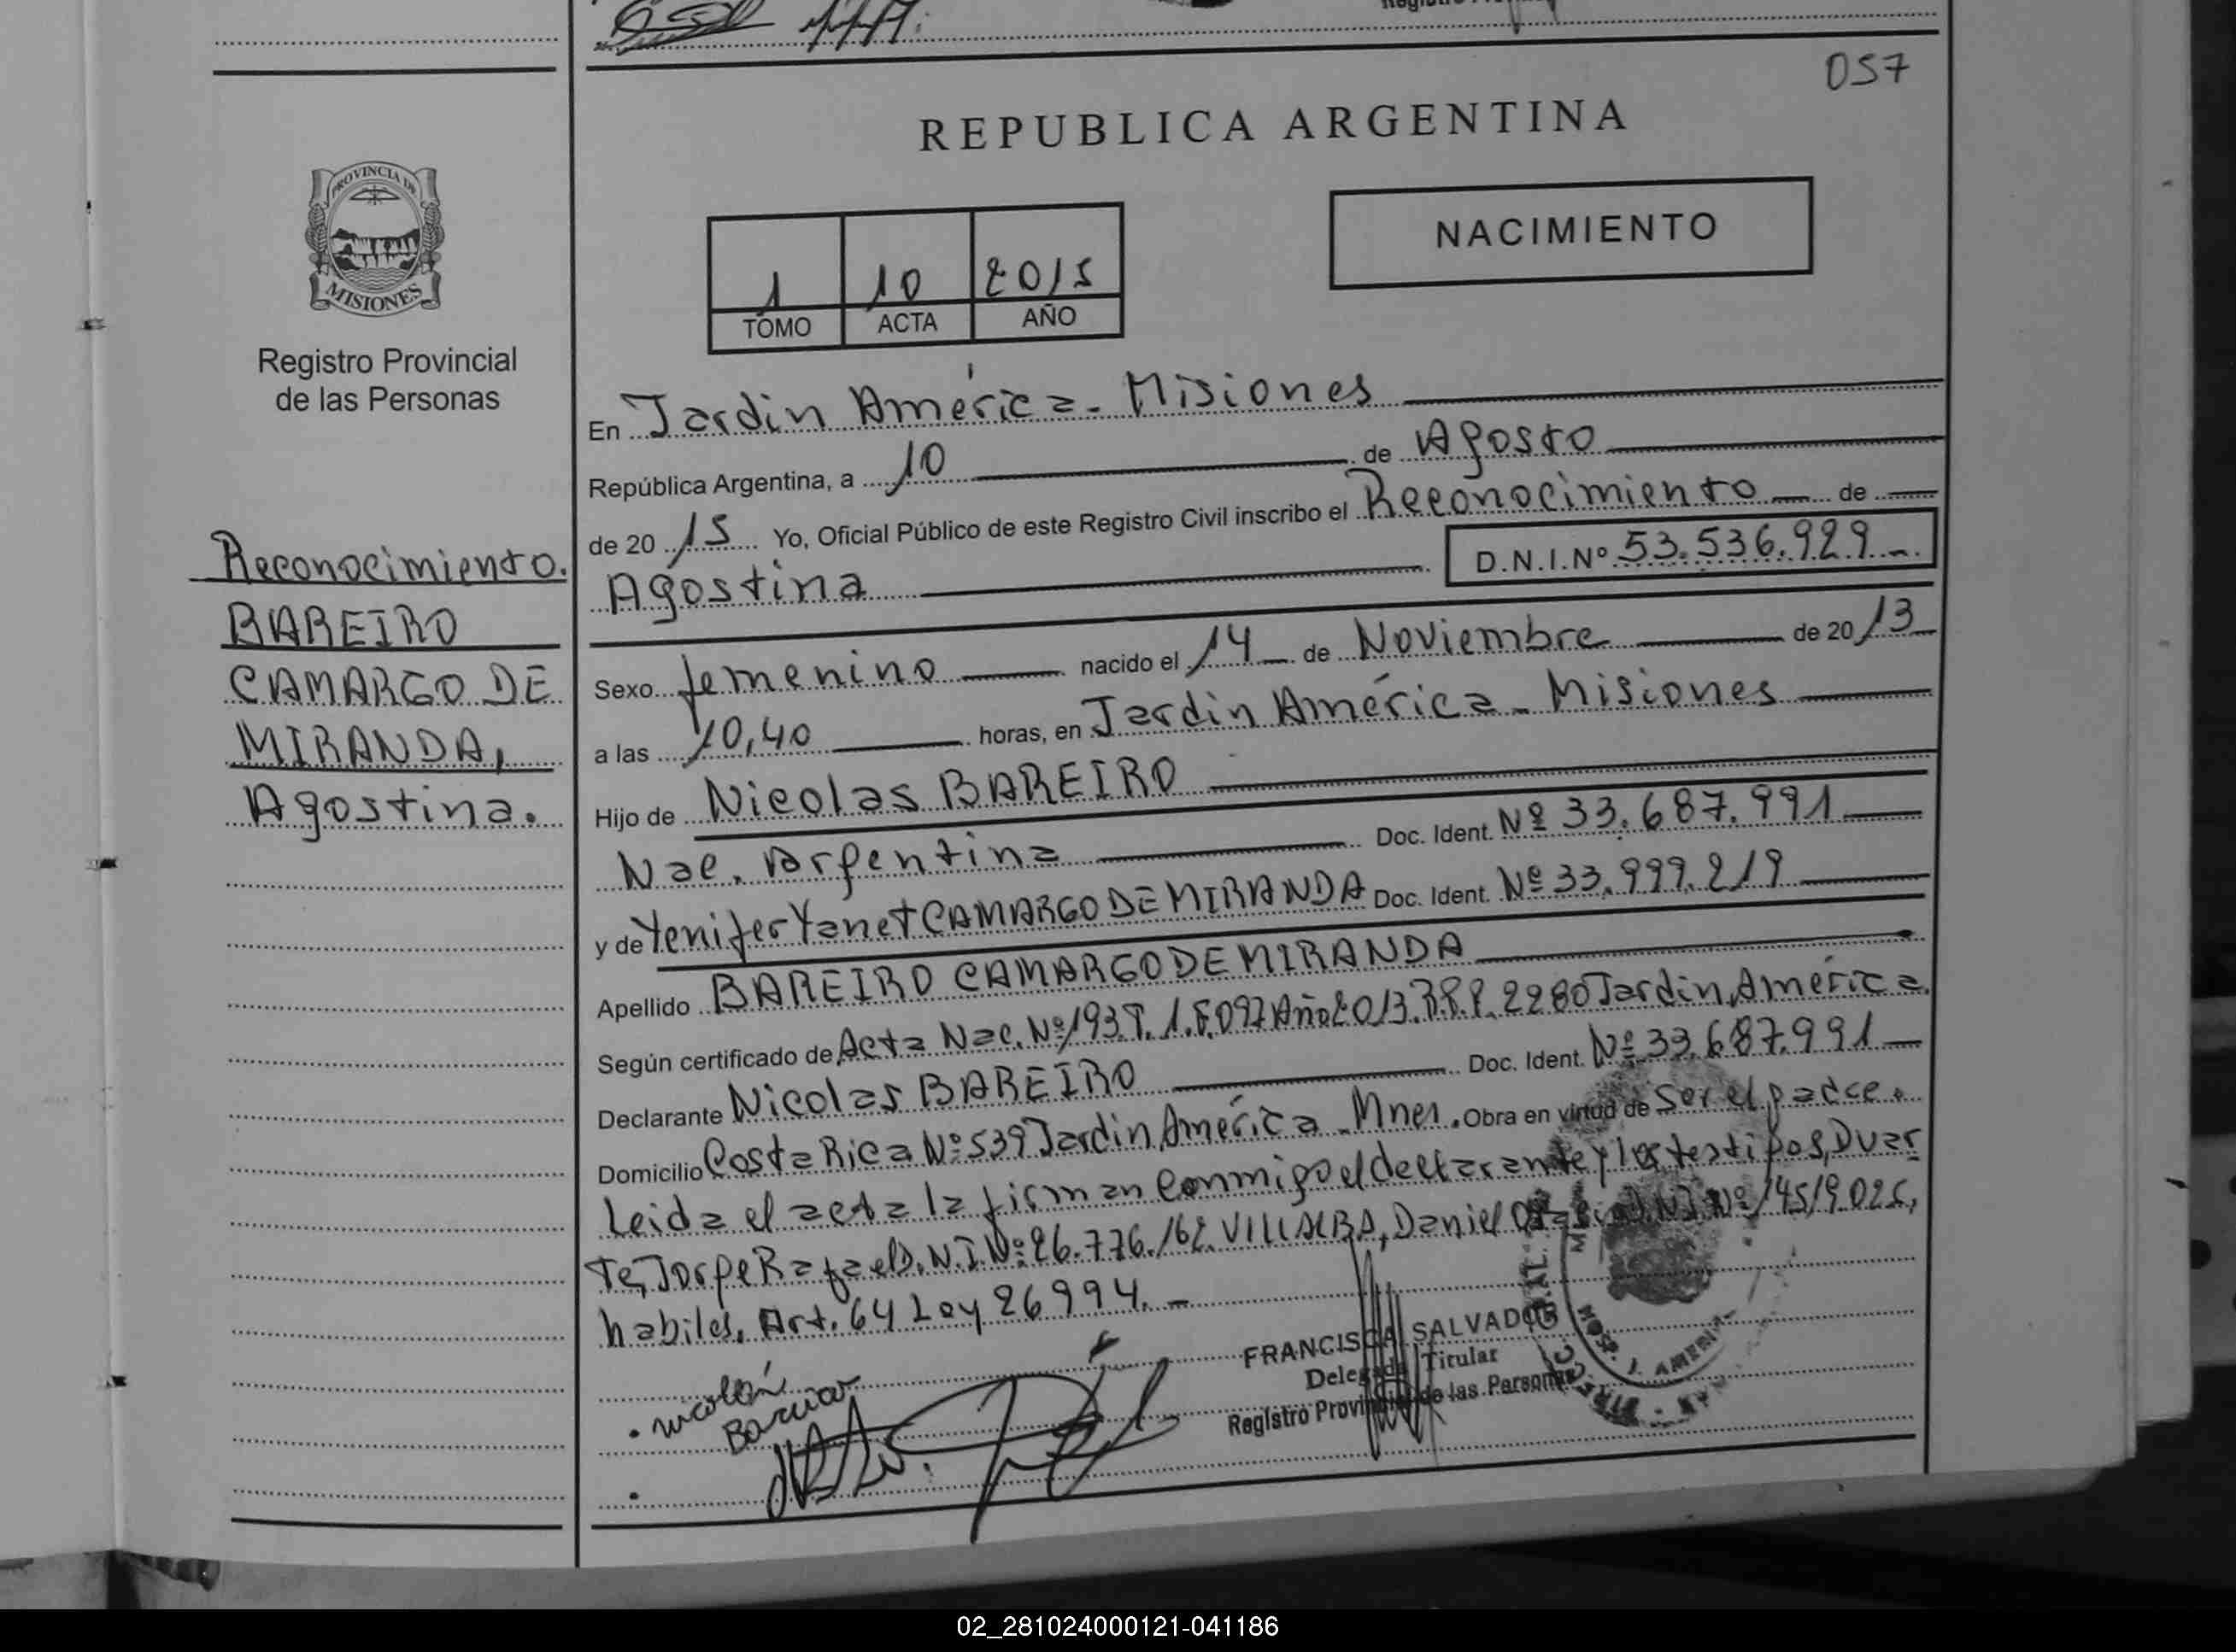 057
REPUBLICA ARGENTINA
PROVINCIA DE
MISIONES
Registro Provincial
de las Personas
1 10 2015
TOMO ACTA AÑO
NACIMIENTO
Reconocimiento.
BAREIRO
CAMARGO DE
MIRANDA,
Agostina.
En Jardin América - Misiones
República Argentina, a 10 de Agosto
de 20 15 Yo, Oficial Público de este Registro Civil inscribo el Reconocimiento de
Agostina D.N.I.Nº 53.536.929
Sexo femenino nacido el 14 de Noviembre de 20 13
a las 10,40 horas, en Jardin América - Misiones
Hijo de Nicolas BAREIRO
Nac. Argentina Doc. Ident. Nº 33.687.991
y de Yenifer Yanet CAMARGO DE MIRANDA Doc. Ident. Nº 33.999.219
Apellido BAREIRO CAMARGO DE MIRANDA
Según certificado de Acta Nac. Nº 193. T. 1. F. 097 Año 2013. R.P.P. 2280 Jardin América
Declarante Nicolas BAREIRO Doc. Ident. Nº 33.687.991
Domicilio Costa Rica Nº 539 Jardin América - Mnes. Obra en virtud de ser el padre.
Leida el acta la firman conmigo el declarante y los testigos, Duar
te, Jorge Rafael D.N.I. Nº 26.776.162. VILLALBA, Daniel D.N.I. Nº
habiles. Art. 64 Ley 26994. -
Nicolas
Bareiro
FRANCISCA SALVADOR
Delegada Titular
Registro Provincial de las Personas
HOSP. J. AMERICA
02_281024000121-041186